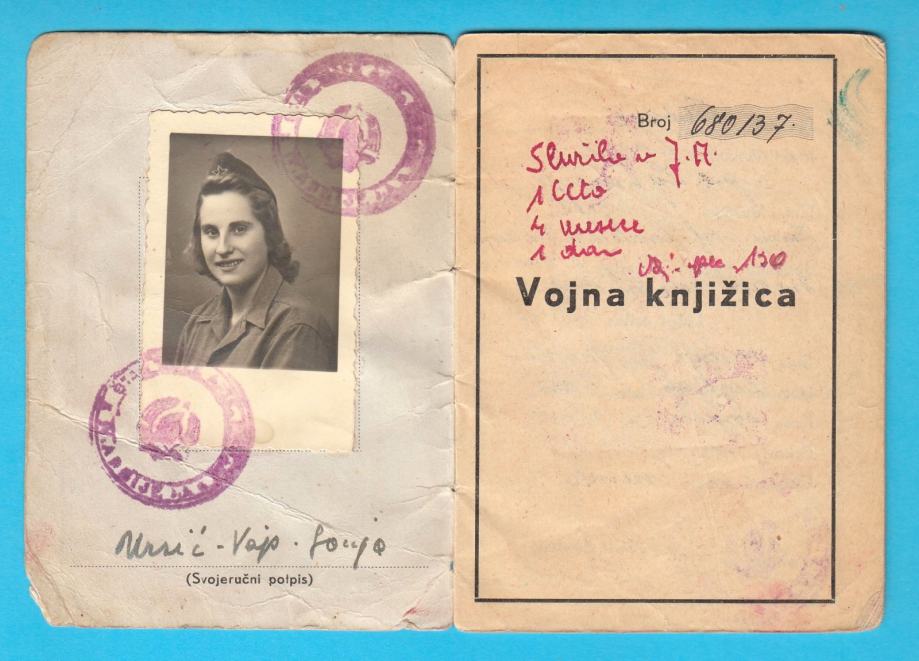 Uršić-Vajs-Sonja
(Svojeručni potpis)
Broj 680137.
Služila u J.A.
1 leto
4 mesece
1 dan
130
Vojna knjižica